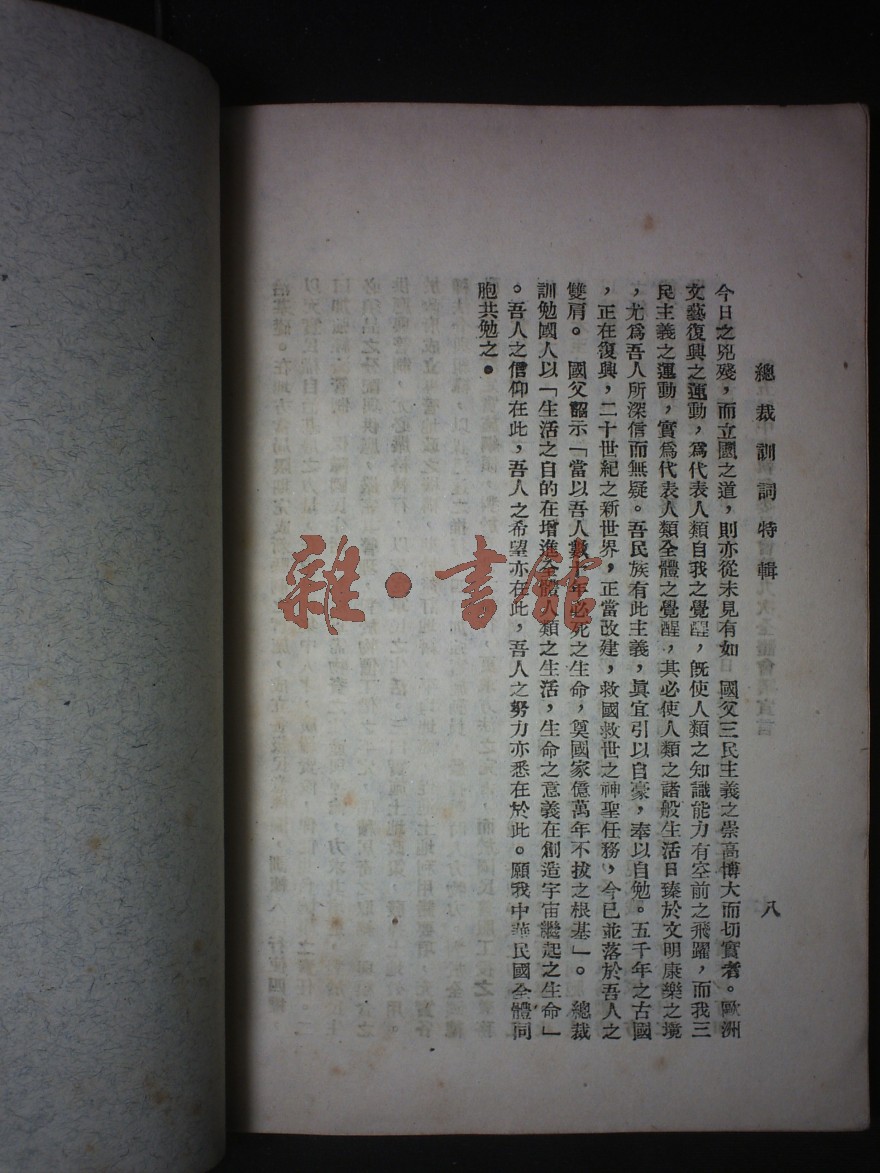 總裁訓詞特輯
八
今日之兇殘，而立國之道，則亦從未見有如　國父三民主義之崇高博大而切實者。歐洲
文藝復興之運動，爲代表人類自我之覺醒，旣使人類之知識能力有空前之飛躍，而我三
民主義之運動，實爲代表人類全體之覺醒，其必使人類之諸般生活日臻於文明康樂之境
，尤爲吾人所深信而無疑。吾民族有此主義，眞宜引以自豪，奉以自勉。五千年之古國
，正在復興，二十世紀之新世界，正當改建，救國救世之神聖任務，今已並落於吾人之
雙肩。　國父詔示「當以吾人數十年必死之生命，奠國家億萬年不拔之根基」。　總裁
訓勉國人以「生活之目的在增進全體人類之生活，生命之意義在創造宇宙繼起之生命」
。吾人之信仰在此，吾人之希望亦在此，吾人之努力亦悉在於此。願我中華民國全體同
胞共勉之。
雜·書館